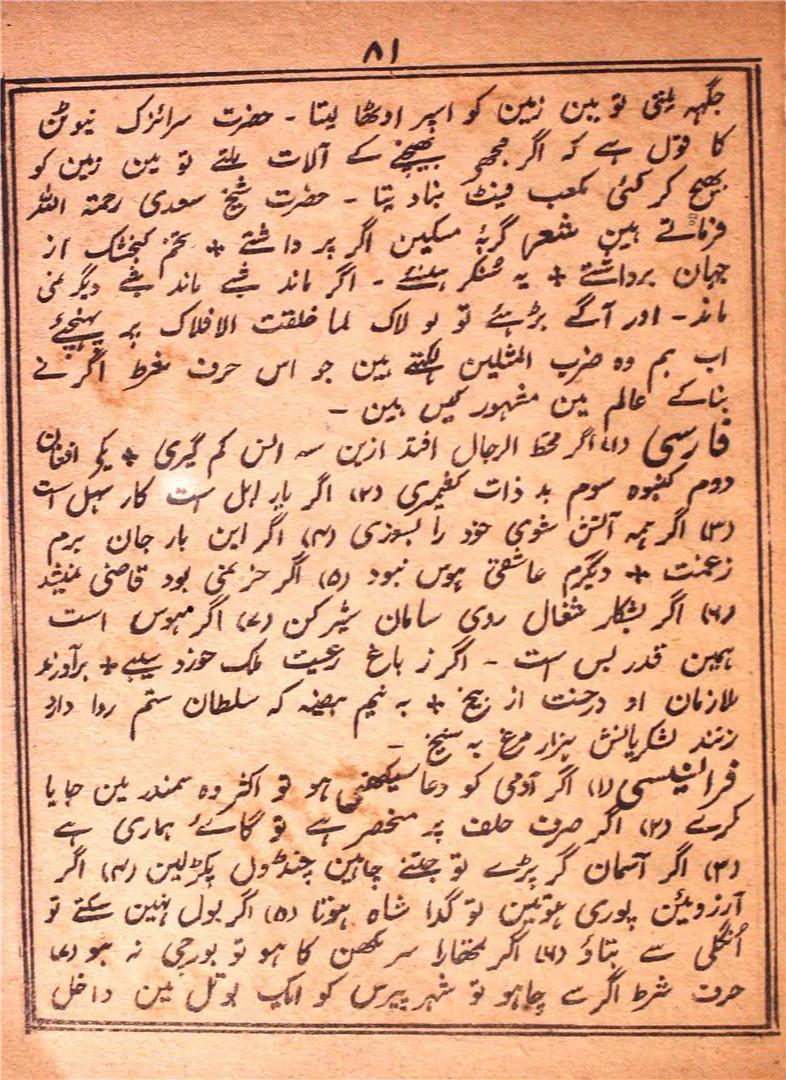 ٨١
جگہہ یلتی تو مین زمین کو اسپر اوٹھا لیتا - حضرت سرائزک نیوٹن
کا قول ہے کہ اگر مجھے بھینچنے کے آلات ملتے تو مین زمین کو
بھینچ کر کئی مکعب فینٹ بنا دیتا - حضرت شیخ سعدی رحمتہ اللہ
فرماتے ہین شعر گربۂ مسکین اگر پر داشتے + تخم کنجشک از
جہان برداشتے + یہ سُنکر ہنسئے - اگر ماند شبے ماند شبے دیگر نمی
ماند - اور آگے بڑہئے تو لو لاک لما خلقت الافلاک پر پہنچئے
اب ہم وہ ضرب المثلین لکہتے ہین جو اس حرف شرط اگر نے
بناکے عالم مین مشہور کین ہین -
فارسی (۱) اگر قحط الرجال افتد ازین سہ انس کم گیری + یکے افغان
دوم کنبوہ سوم بد ذات کشمیری (۲) اگر یار اہل ست کار سہل است
(۳) اگر ہمہ آتش شوی خود را بسوزی (۴) اگر این بار جان برم
زعمنت + دیگرم عاشقی ہوس نبود (۵) اگر خر نمی بود قاضی نمیشد
(۶) اگر بشکار شغال روی سامان شیر کن (۷) اگر مہوس است
ہمین قدر بس ست - اگر ز باغ رعیت ملک خورد سیبے + برآورند
ملازمان او درخت از بیخ + بہ نیم بیضہ کہ سلطان ستم روا دارد
زنند لشکریانش ہزار مرغ بہ سیخ -
فرانسیسی (۱) اگر آدمی کو دعا سیکھنی ہو تو اکثر وہ سمندر مین جایا
کرے (۲) اگر صرف حلف پر منحصر ہے تو گائے ہماری ہے
(۳) اگر آسمان گر پڑے تو جتنے چاہین چنڈول پکڑ لین (۴) اگر
آرزوئین پوری ہوتین تو گدا شاہ ہوتا (۵) اگر بول نہین سکتے تو
اُنگلی سے بتاؤ (۶) اگر تمھارا سر مکھن کا ہو تو بورچی نہ ہو (۷)
حرف شرط اگر سے چاہو تو شہر پیرس کو ایک بوتل مین داخل